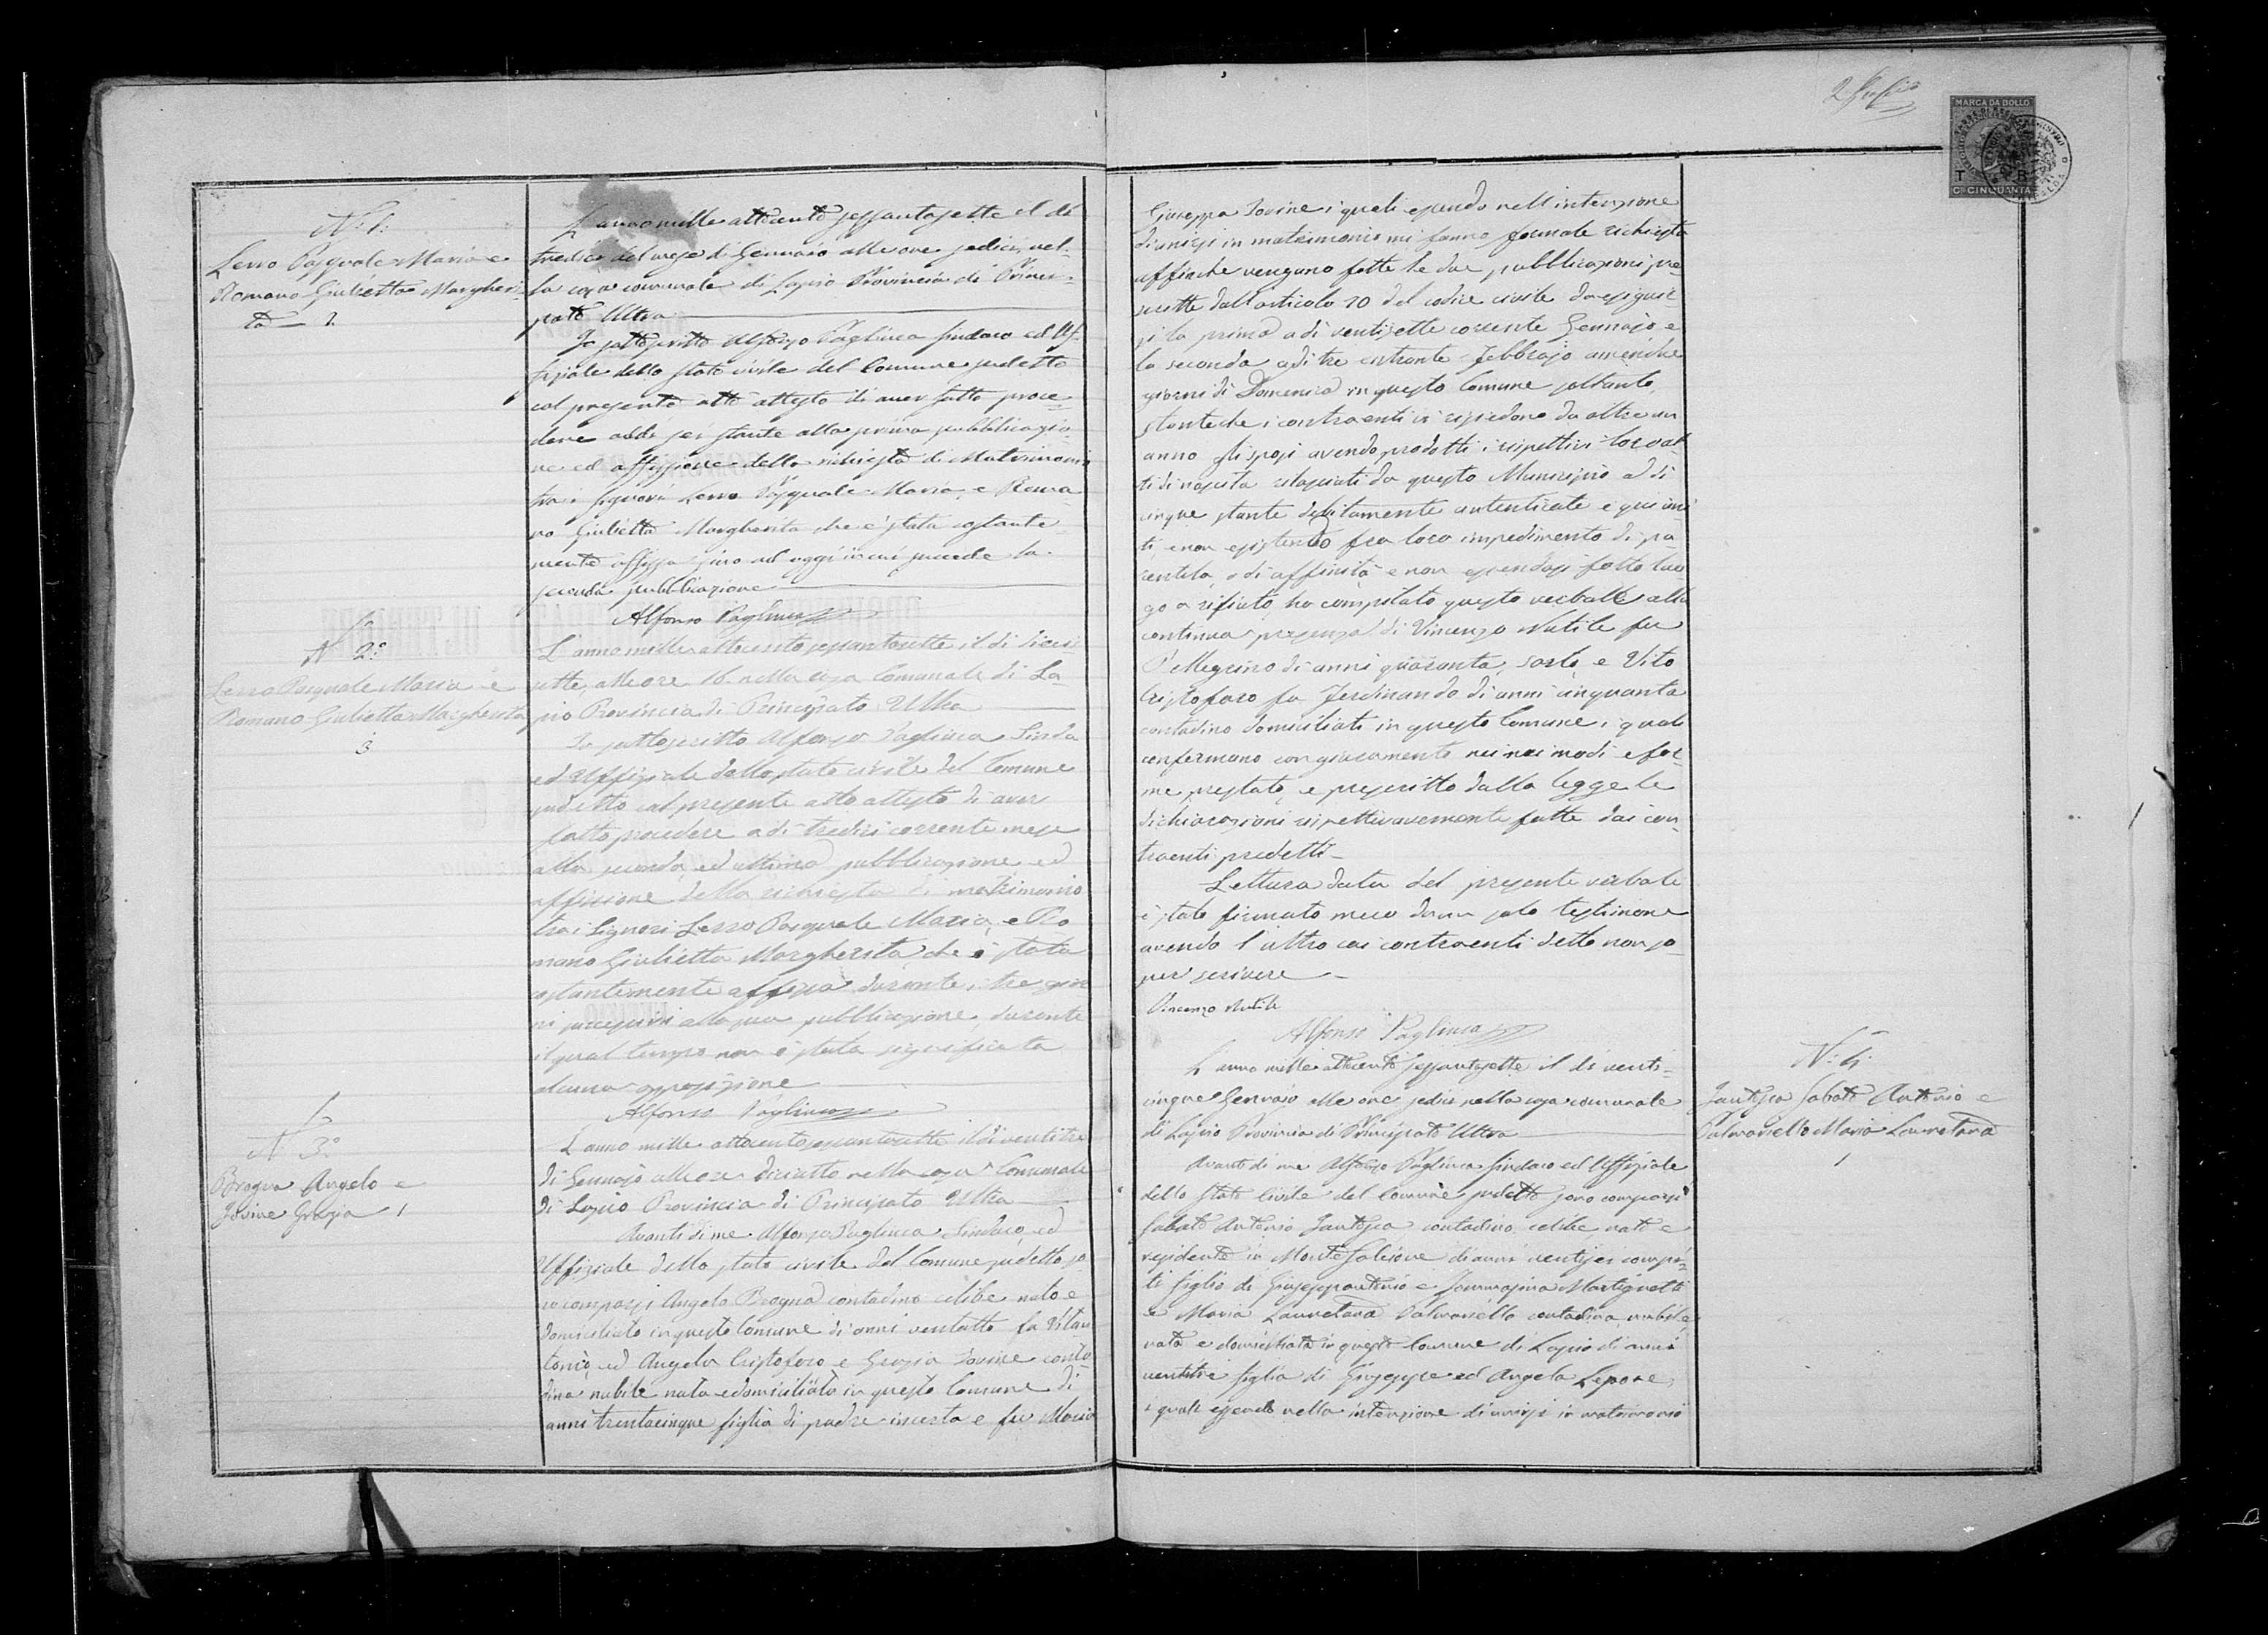 MARCA DA BOLLO
Cⁱ CINQUANTA
N. 1.
Lerro Pasquale Maria e
Romano Giulietta Margheri-
ta
L'anno mille ottocento sessantasette il dì
tredici del mese di Gennaio alle ore sedici, nel-
la casa comunale di Lapio Provincia di Princi-
pato Ultra
Io sottoscritto Alfonso Pagliuca Sindaco ed Uf-
fiziale dello stato civile del Comune sudetto
col presente atto attesto di aver fatto proce-
dere addì sei stante alla prima pubblicazio-
ne ed affissione della richiesta di Matrimonio
tra i signori Lerro Pasquale Maria, e Roma-
no Giulietta Margherita che è stata costante-
mente affissa fino ad oggi in cui succede la
seconda pubblicazione
Alfonso Pagliuca
N. 2.°
Lerro Pasquale Maria e
Romano Giulietta Margherita
L'anno mille ottocento sessantasette il dì dicias-
sette, alle ore 16. nella casa Comunale di La-
pio Provincia di Principato Ultra
Io sottoscritto Alfonso Pagliuca Sinda
ed Uffiziale dello stato civile del Comune
sudetto col presente atto attesto di aver
fatto procedere a dì tredici corrente mese
alla seconda, ed ultima pubblicazione ed
affissione della richiesta di matrimonio
tra i Signori Lerro Pasquale Maria, e Ro
mano Giulietta Margherita che è stata
costantemente affissa durante i tre gior
ni successivi alla sua pubblicazione, durante
il qual tempo non è stata significata
alcuna opposizione
Alfonso Pagliuca
N. 3.°
Brogna Angelo e
Jovine Grazia 1
L'anno mille ottocento sessantasette il dì ventitre
di Gennajo alle ore diciotto nella casa Comunale
di Lapio Provincia di Principato Ultra
Avanti di me Alfonso Pagliuca Sindaco, ed
Uffiziale dello stato civile del Comune sudetto so-
no comparsi Angelo Brogna contadino celibe nato e
domiciliato in questo Comune di anni ventotto fu Vitan
tonio, ed Angela Cristofaro e Grazia Jovine conta-
dina nubile nata e domiciliata in questo Comune di
anni trentacinque figlia di padre incerto e fu Maria
Giuseppa Jovine i quali essendo nell'intenzione
di unirsi in matrimonio mi fanno formale richiesta
affinche vengano fatte le due pubblicazioni pre-
scritte dall'articolo 70 del codice civile da eseguir-
si la prima a dì ventisette corrente Gennajo e
la seconda a dì tre entrante Febbrajo amendue
giorni di Domenica in questo Comune soltanto,
stanteche i contraenti vi risiedono da oltre un
anno gli sposi avendo prodotti i rispettivi loro at-
ti di nascita rilasciati da questo Municipio a dì
cinque stante debitamente autenticate e qui uni
ti, e non esistendo fra loro impedimento di pa-
rentela, o di affinità e non essendosi fatto luo-
go a rifiuto, ho compilato questo verbale alla
continua presenza di Vincenzo Nutile fu
Pellegrino di anni quaranta, sarto, e Vito
Cristofaro fu Ferdinando di anni cinquanta
contadino domiciliati in questo Comune, i quali
confermano con giuramento nei modi e for-
me prestato, e prescritto dalla legge le
dichiarazioni rispettivamente fatte dai con-
traenti predetti
Lettura data del presente verbale
è stato firmato meco da un solo testimone
avendo l'altro coi contraenti detto non sa-
per scrivere
Vincenzo Nutile
Alfonso Pagliuca
N. 4.
Santosca Sabato Antonio e
Palmariello Maria Lauretana
1
L'anno mille ottocento sessantasette il dì venti-
cinque Gennaio alle ore sedici nella casa comunale
di Lapio Provincia di Principato Ultra
Avanti di me Alfonso Pagliuca Sindaco ed Uffiziale
dello Stato Civile del Comune sudetto sono comparsi
Sabato Antonio contadino, celibe, nato e
residente in Montefalcione di anni ventisei compi-
ti figlio di Giuseppantonio e Martignetti
e Maria Lauretana Palmariello contadina, nubile
nata e domiciliata in questo Comune di Lapio di anni
ventitre figlia di Giuseppe ed Angela Lepore,
i quali essendo nella intenzione di unirsi in matrimonio